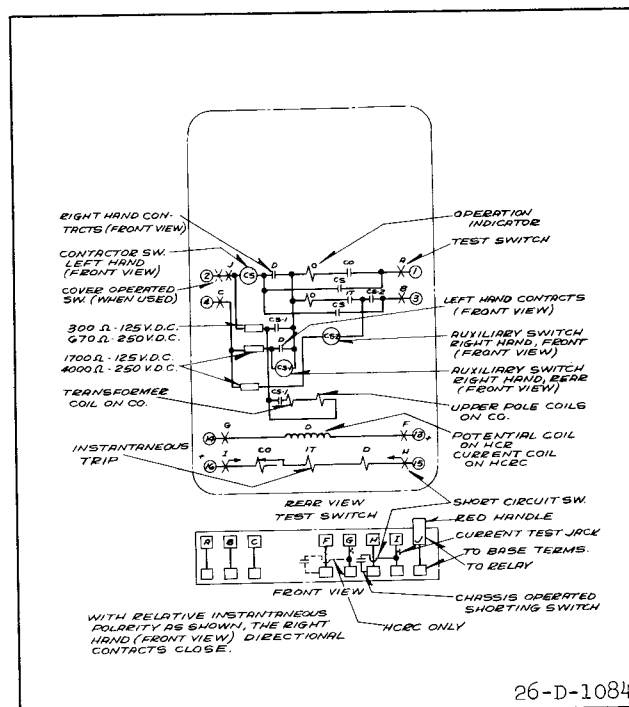 RIGHT HAND CON-
TACTS (FRONT VIEW)
CONTACTOR SW.
LEFT HAND
(FRONT VIEW)
COVER OPERATED
SW. (WHEN USED)
300 Ω - 125 V.D.C.
670 Ω - 250 V.D.C.
1700 Ω - 125 V.D.C.
4000 Ω - 250 V.D.C.
TRANSFORMER
COIL ON CO.
INSTANTANEOUS
TRIP
OPERATION
INDICATOR
TEST SWITCH
LEFT HAND CONTACTS
(FRONT VIEW)
AUXILIARY SWITCH
RIGHT HAND, FRONT
(FRONT VIEW)
AUXILIARY SWITCH
RIGHT HAND, REAR
(FRONT VIEW)
UPPER POLE COILS
ON CO.
POTENTIAL COIL
ON HCR
CURRENT COIL
ON HCRC
SHORT CIRCUIT SW.
2 J CS D O CO A 1
CS
4 C O IT CS-2 B 3
CS
CS-1
D
CS2
CS-1
G D F +
+ 16 I CO IT D H 15
REAR VIEW
TEST SWITCH
RED HANDLE
CURRENT TEST JACK
TO BASE TERMS.
TO RELAY
A B C F G H I J
FRONT VIEW
CHASSIS OPERATED
SHORTING SWITCH
HCRC ONLY
WITH RELATIVE INSTANTANEOUS
POLARITY AS SHOWN, THE RIGHT
HAND (FRONT VIEW) DIRECTIONAL
CONTACTS CLOSE.
26-D-1084